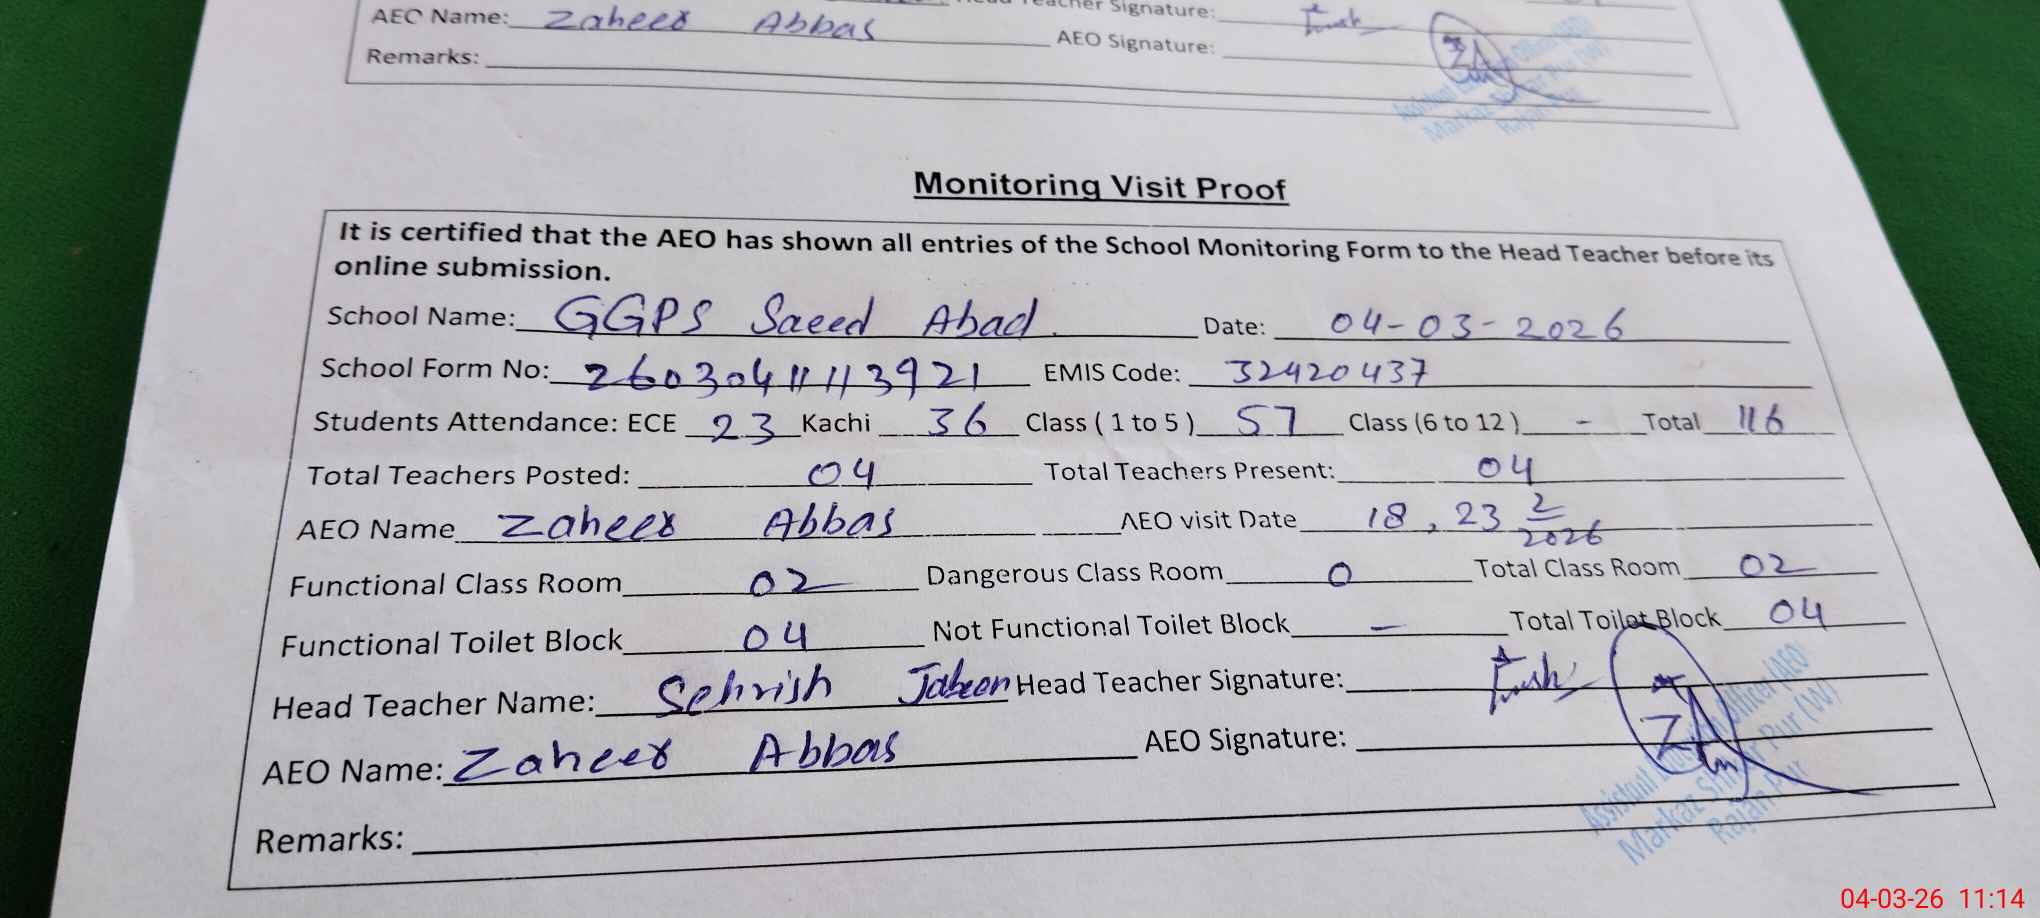 Teacher Signature:
AEO Name: Zaheer Abbas AEO Signature: ZA
Remarks:
Monitoring Visit Proof
It is certified that the AEO has shown all entries of the School Monitoring Form to the Head Teacher before its
online submission.
School Name: GGPS Saeed Abad. Date: 04-03-2026
School Form No: 26030411113921 EMIS Code: 32420437
Students Attendance: ECE 23 Kachi 36 Class ( 1 to 5 ) 57 Class (6 to 12 ) - Total 116
Total Teachers Posted: 04 Total Teachers Present: 04
AEO Name Zaheer Abbas AEO visit Date 18, 23 2/2026
Functional Class Room 02 Dangerous Class Room 0 Total Class Room 02
Functional Toilet Block 04 Not Functional Toilet Block - Total Toilet Block 04
Head Teacher Name: Sehrish Jabeen Head Teacher Signature:
AEO Name: Zaheer Abbas AEO Signature: ZA
Assistant Officer (AEO)
Markaz Pur (W)
Rajan Pur
Remarks:
04-03-26 11:14